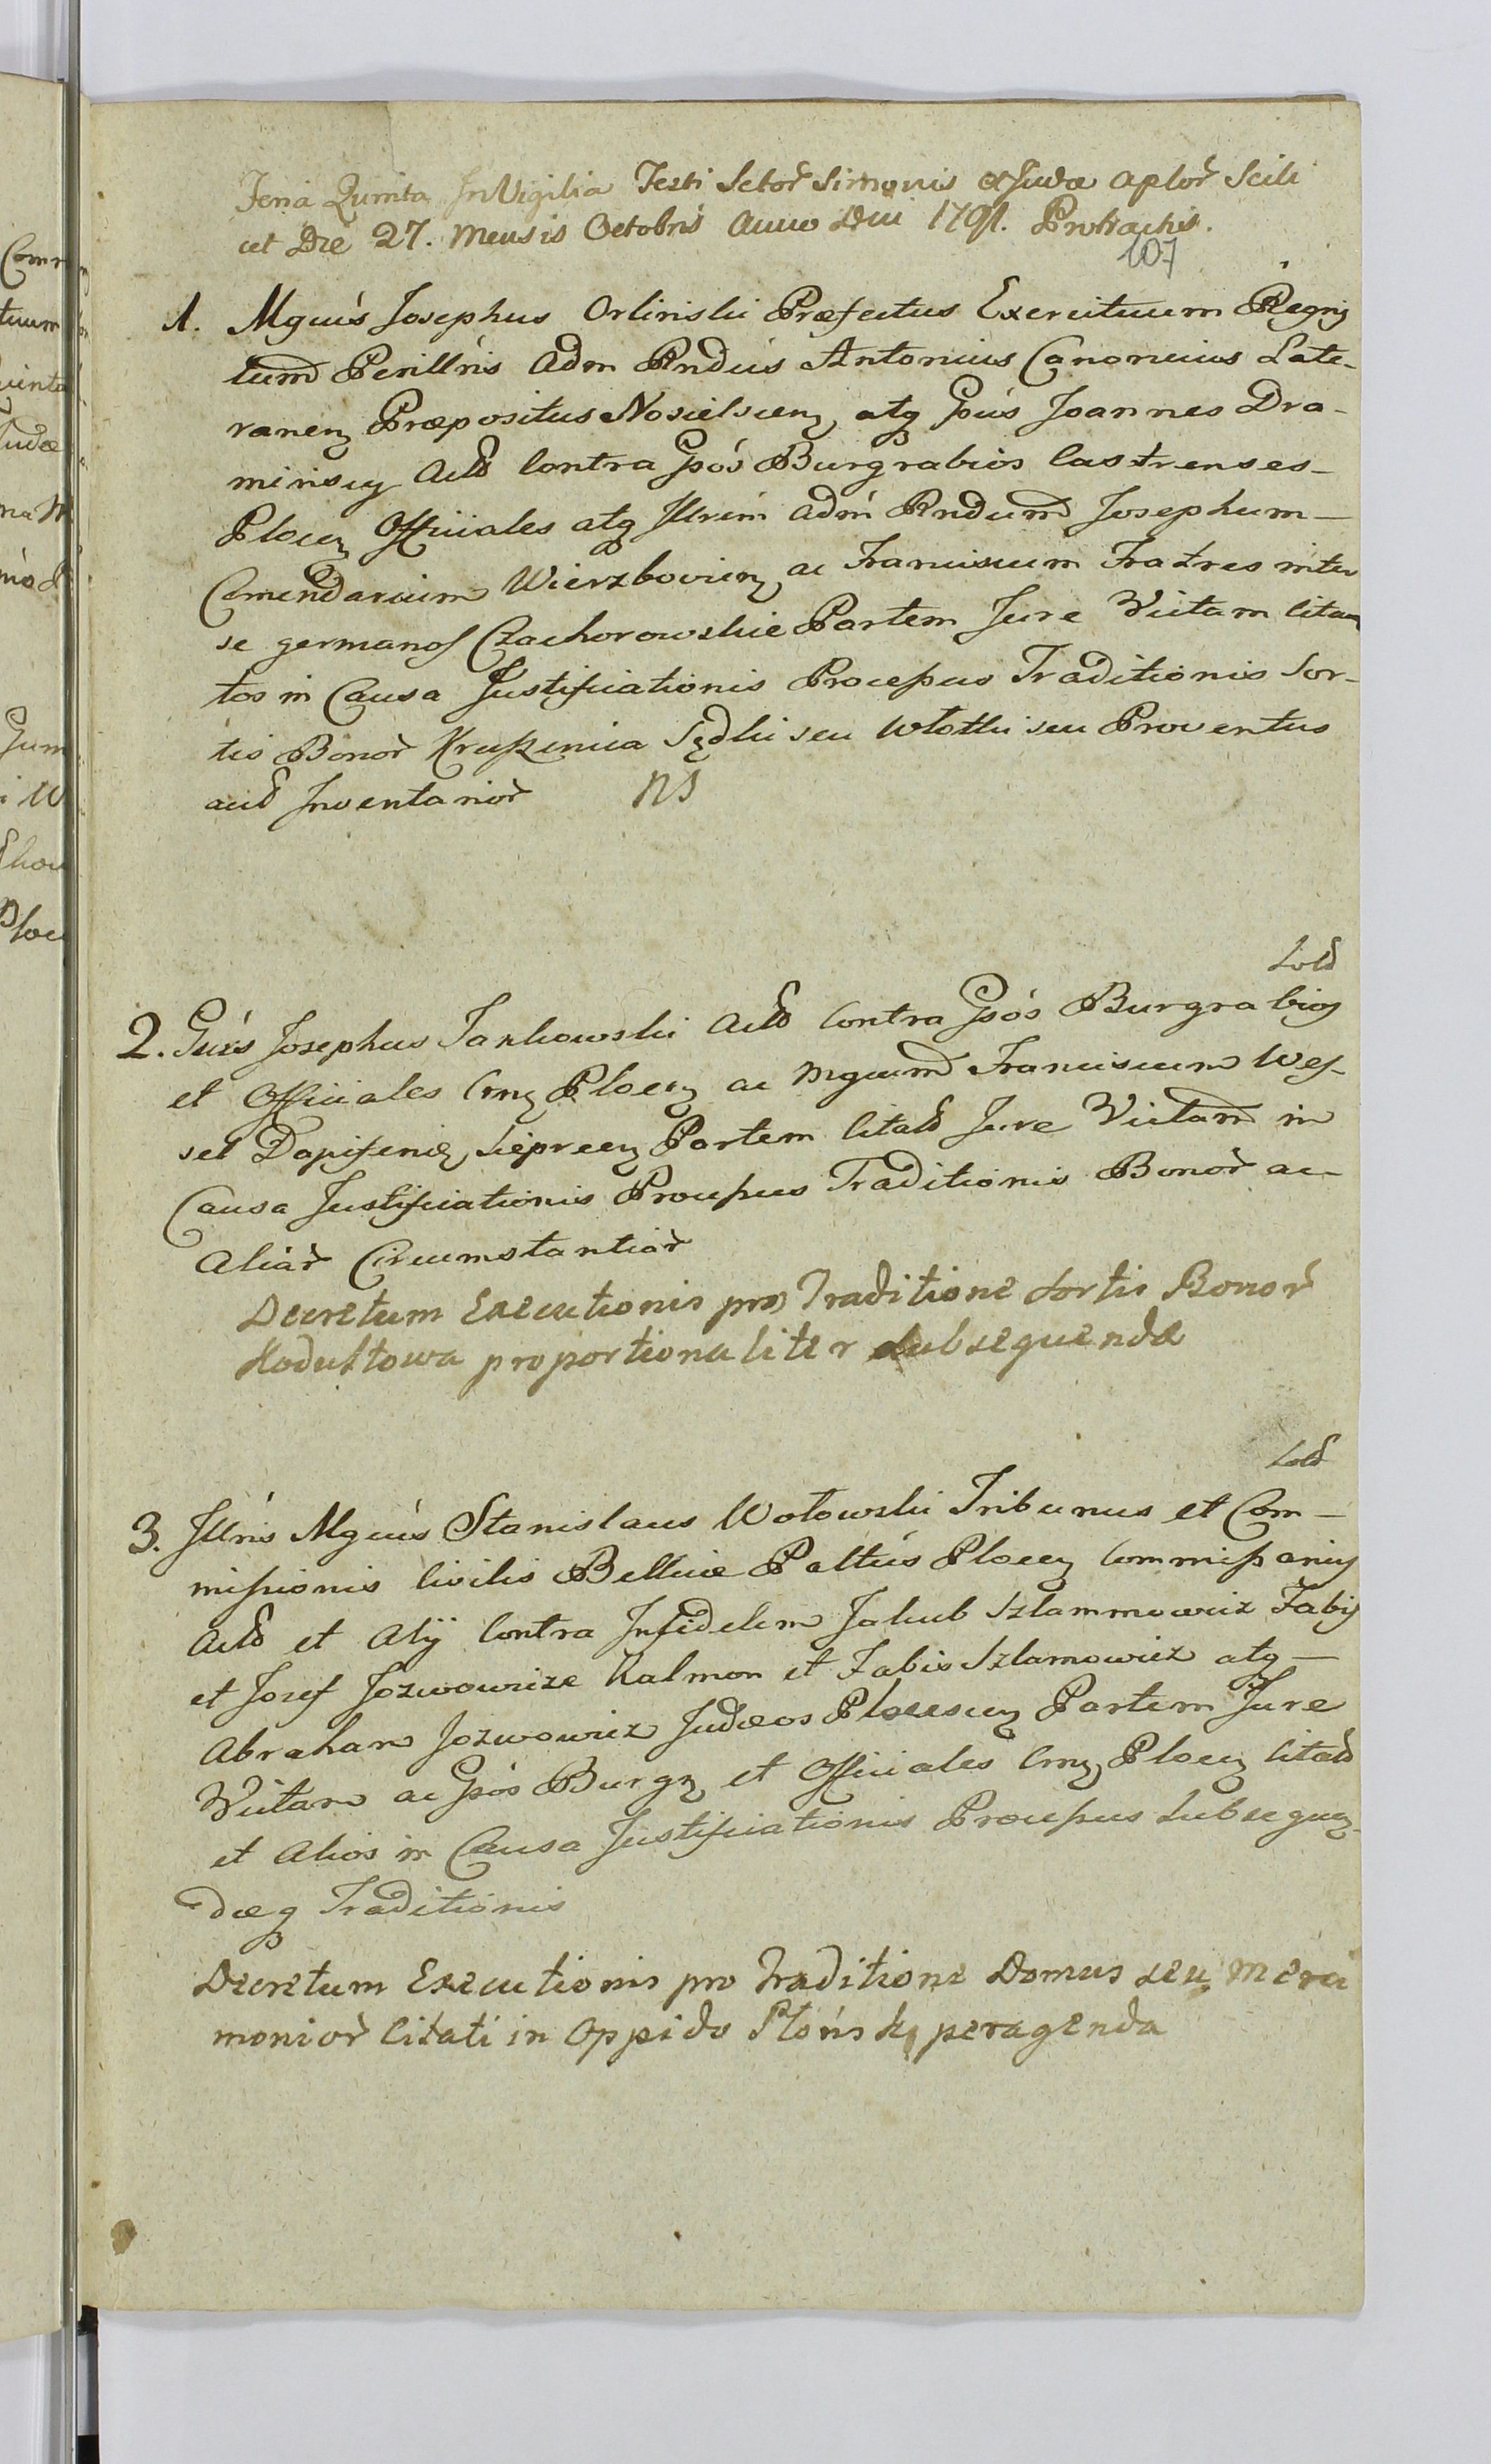 Feria Quinta In Vigilia Festi Sctor̃ Simonis et Judæ Aplor̃ Scili
cet Die 27. Mensis Octobris Anno Dni 1791. Protractis.
107
1. Mgcus Josephus Orlinski Præfectus Exercituum Regni
tum Perillris Adm Rndus Antonius Canonicus Late-
ranen Præpositus Nosielscen atq Gsus Joannes Dra-
minscy Actō Contra Gsos Burgrabios Castrenses
Plocen Officiales atq Illrem adm Rndum Josephum
Comendarium Wierzbovien ac Franciscum Fratres inter
se germanos Czachorowskie Partem Jure Victam Cita
tos in Causa Justificationis Processus Traditionis Sor-
tis Bonor̃ Kruszenica Sędki seu Włotki seu Proventus
acō Inventarior̃ NS
Solō
2. Gsus Josephus Jankowski Actō Contra Gsos Burgrabios
et Officiales Crns Plocen ac Mgcum Franciscum Wes-
sel Dapiferid Sieprcen Partem Citatō Jure Victam in
Causa Justificationis Processus Traditionis Bonor̃ ac
Aliar̃ Circumstantiar̃
Decretum Executionis pro Traditione Sortis Bonor̃
proportionaliter subsequenda
Solō
3. Illris Mgcus Stanislaus Wołowski Tribunus et Com-
missionis Civilis Bellicæ Palttus Plocen Commissarius
Actō et Alij Contra Infidelem Jakub Szlammowicz Fabis
et Josef Jozwowicze Kalmon et Fabis Szlamowicz atq
Abraham Jozwowicz Judæos Plocescen Partem Jure
Victam ac Gsos Burgs et Officiales Crns Plocen Citatō
et Alios in Causa Justificationis Processus Subsequen-
dæq Traditionis
Decretum Executionis pro Traditione Domus seu Merci
monior̃ Citati in Oppido Płońsk peragenda